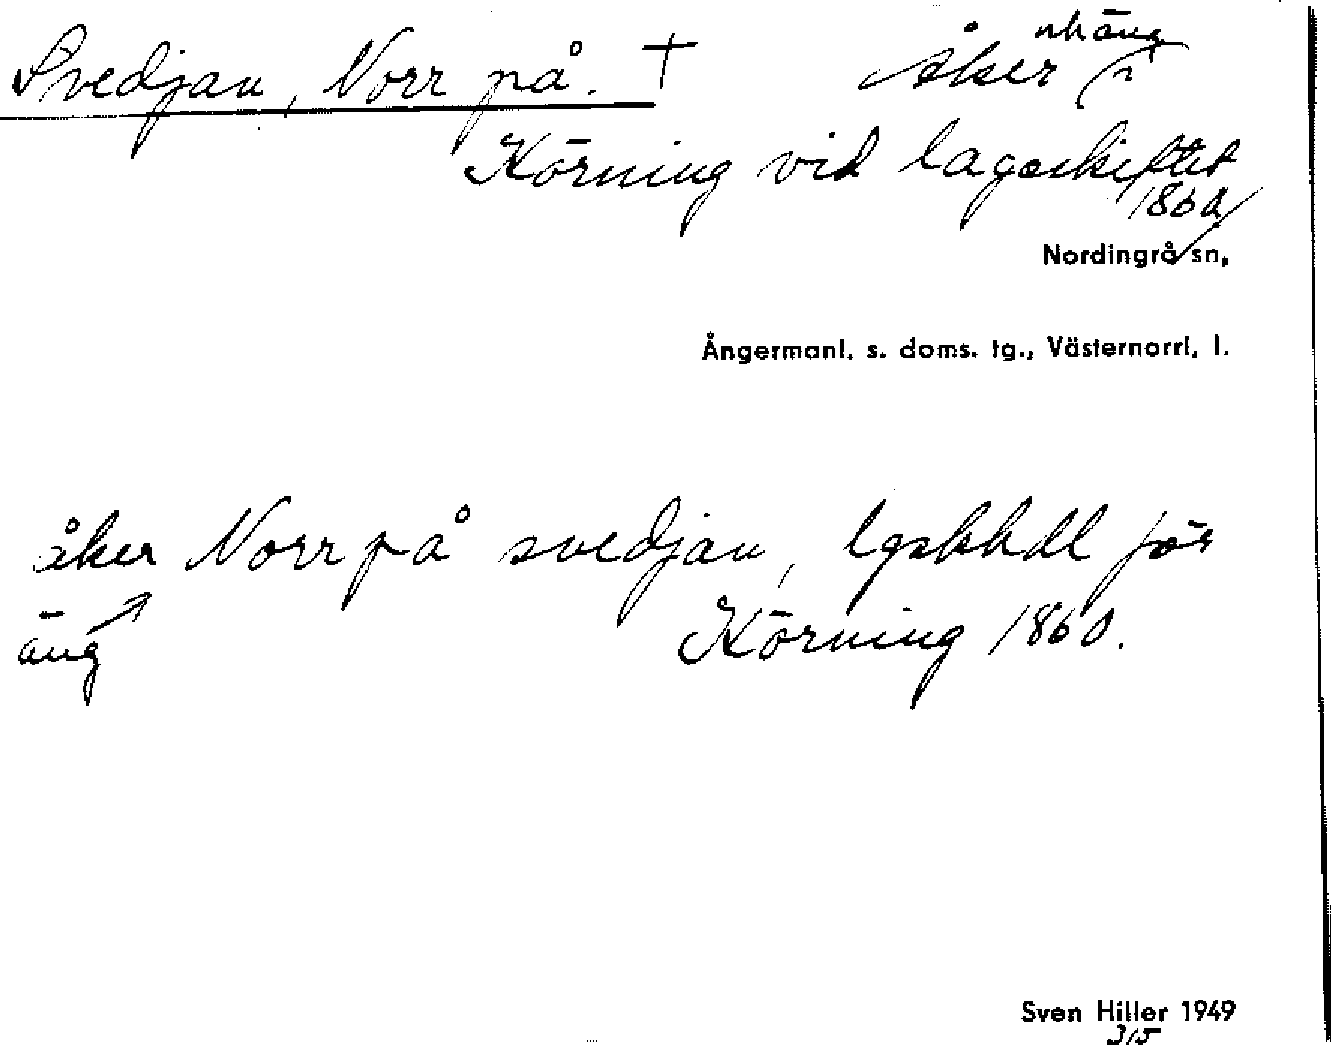 Svedjan, Norr på. † åker o. äng i
Körning vid lagaskiftet
1860
Nordingrå sn,
Ångermanl. s. doms. tg., Västernorrl. l.
åker Norr på svedjan, lgskhdl för
äng Körning 1860.
Sven Hiller 1949
315